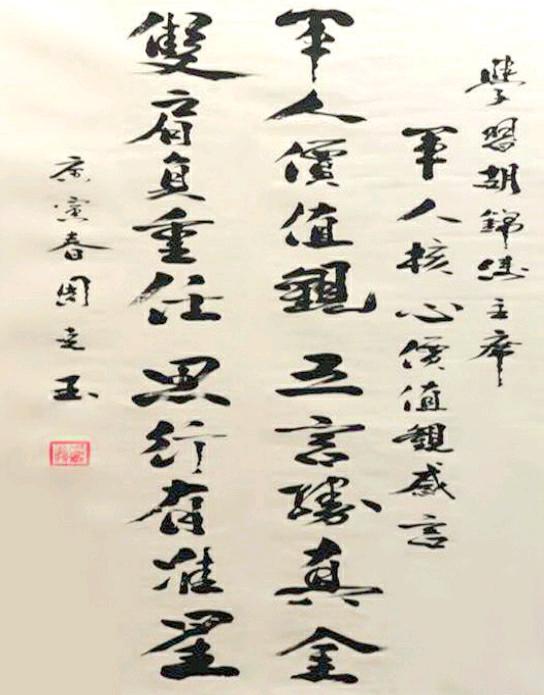 學習胡錦濤主席
軍人核心價值觀感言
軍人價值觀五言勝真金
雙肩負重任思行有准星
庚寅春周克玉